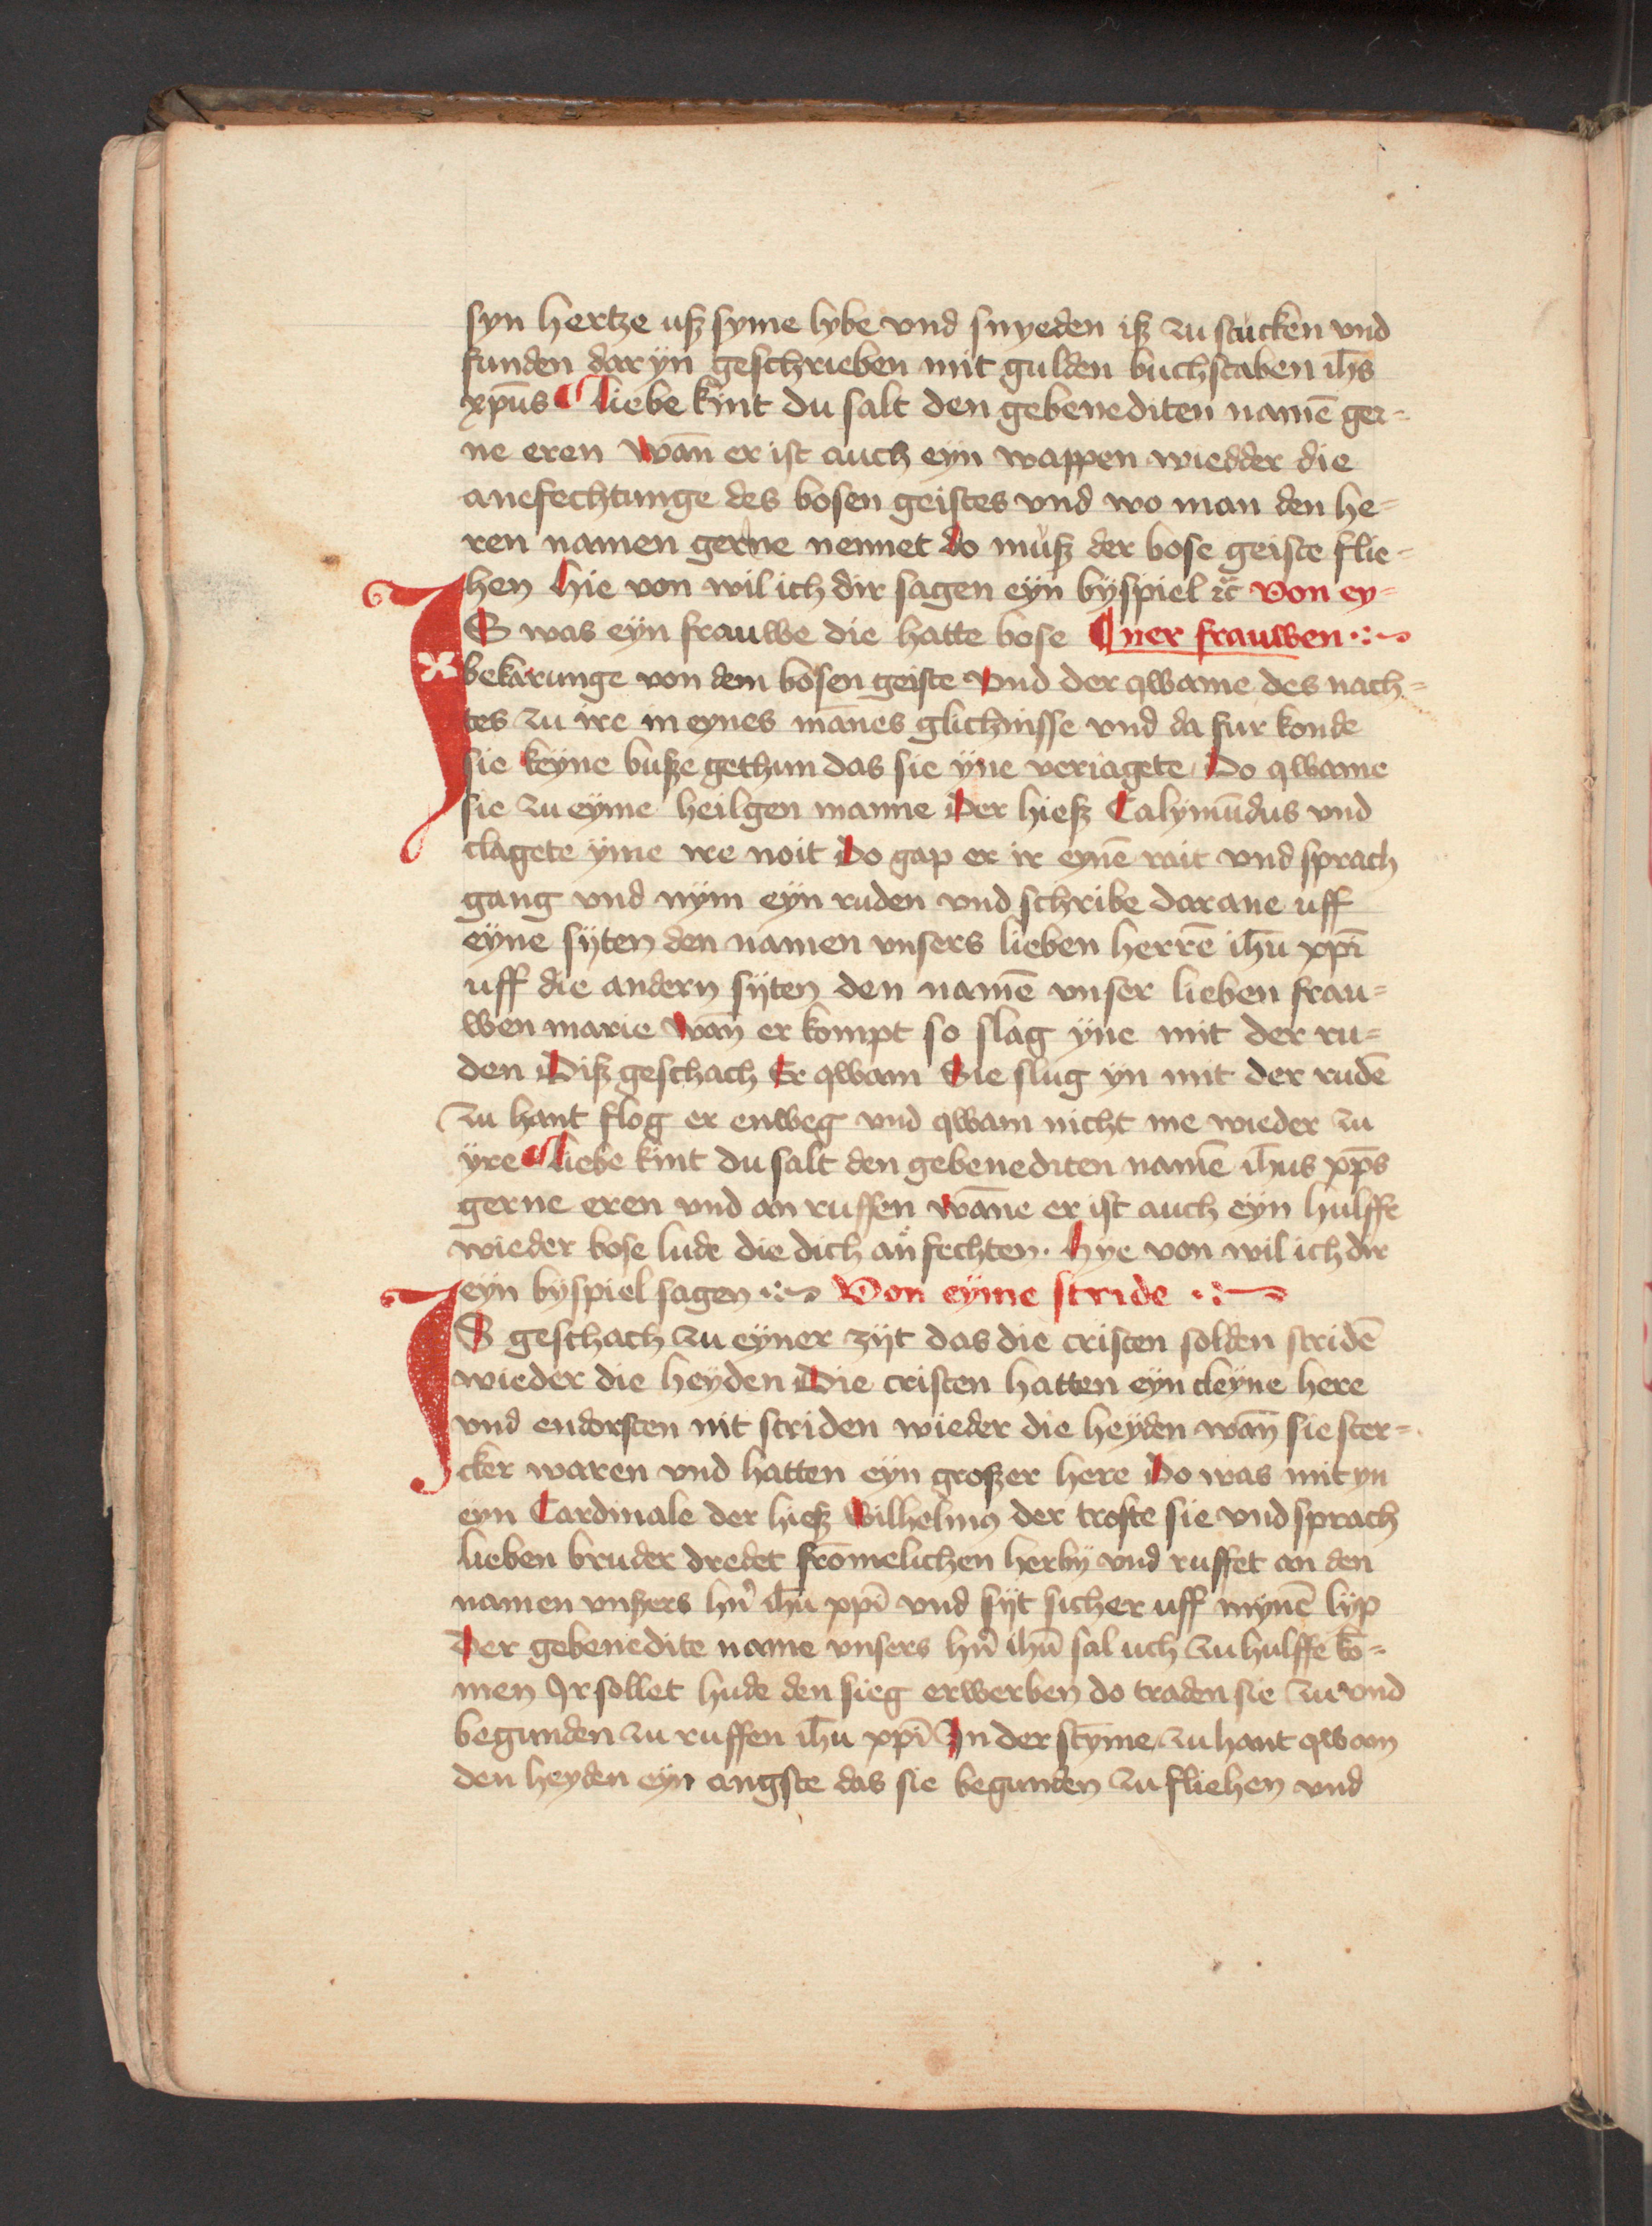 syn hertze uſz syme lybe vnd snyeden iſz zu stücken vnd
funden dar ÿn geschrieben mit gulden buchstaben ih̄s
xp̄us Liebe kint du salt den gebenediten namē ger⸗
ne eren wan̄ er ist auch eyn wappen wiedder die
anefechtunge des bosen geistes vnd wo man den he⸗
ren namen gerne nennet do müſz der bose geiste flie⸗
hen Hie von wil ich dir sagen eyn bÿspiel ꝛc̄ Von ey⸗
IS was eÿn frauwe die hatte bose ner frauwen
bekarunge von dem bosen geiste Vnd der qwame des nach⸗
tes zu ire in eynes mānes glichnisse vnd da fur konde
sie keÿne buſze gethun das sie ÿne veriagete Do qwame
sie zu eÿme heilgen manne Der hieſz Calymūdus vnd
clagete ÿme ire noit Do gap er ir eynē rait vnd sprach
gang vnd nÿm eÿn ruden vnd schribe darane uff
eÿne sÿten den namen vnsers lieben herrē ih̄u xp̄i
uff die andern sÿten den namē vnser lieben frau⸗
wen marie wan̄ er kompt so slag ÿne mit der ru⸗
den Diſz geschach Er qwam Sie slug yn mit der rudē
zu hant flog er enweg vnd qwam nicht me wieder zu
ÿre Liebe kint du salt den gebenediten namē ih̄us xp̄s
gerne eren vnd an ruffen wāne er ist auch eÿn hulffe
wieder bose lude die dich an fechten. Hye von wil ich dir
eÿn bÿspiel sagen Von eÿme stride
IS geschach zu eÿner zÿt das die cristen solden stridē
wieder die heÿden Die cristen hatten eÿn cleÿne here
vnd endorsten nit striden wieder die heÿden wan̄ sie ster⸗
cker waren vnd hatten eÿn groſzer here Do was mit yn
eyn Cardinale der hieſz Wilhelmꝰ der troste sie vnd sprach
lieben bruder dredet frōmelichen herbÿ vnd ruffet an den
namen vnſzers hn̄ ih̄u xp̄i vnd sÿt sicher uff mynē lÿp
Der gebenedite name vnsers hn̄ ih̄u sal uch zu hulffe kō⸗
men Ir sollet hude den sieg erwerben do traden sie zu vnd
begunden zu ruffen ih̄u xp̄i In der stÿme zu hant qwam
den heyden eÿn angste das sie begunden zu fliehen vnd